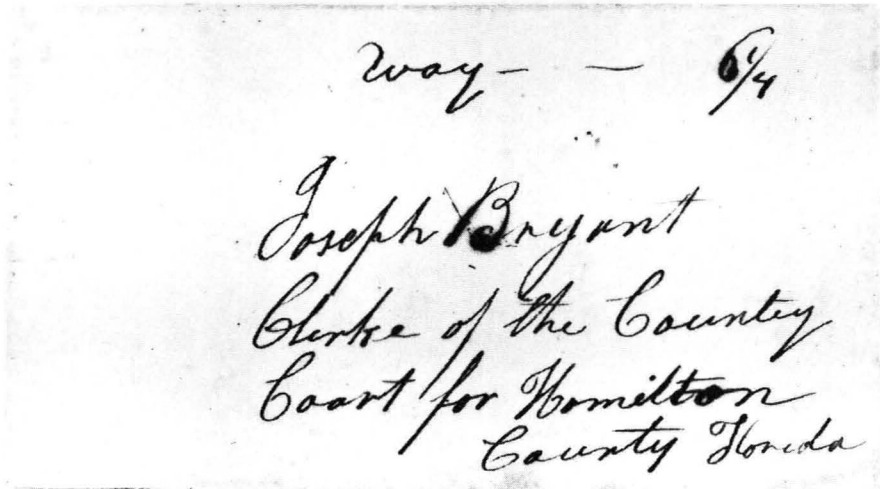 Way - — 6 1/4
Joseph Bryant
Clerke of the County
Court for Hamilton
County Florida